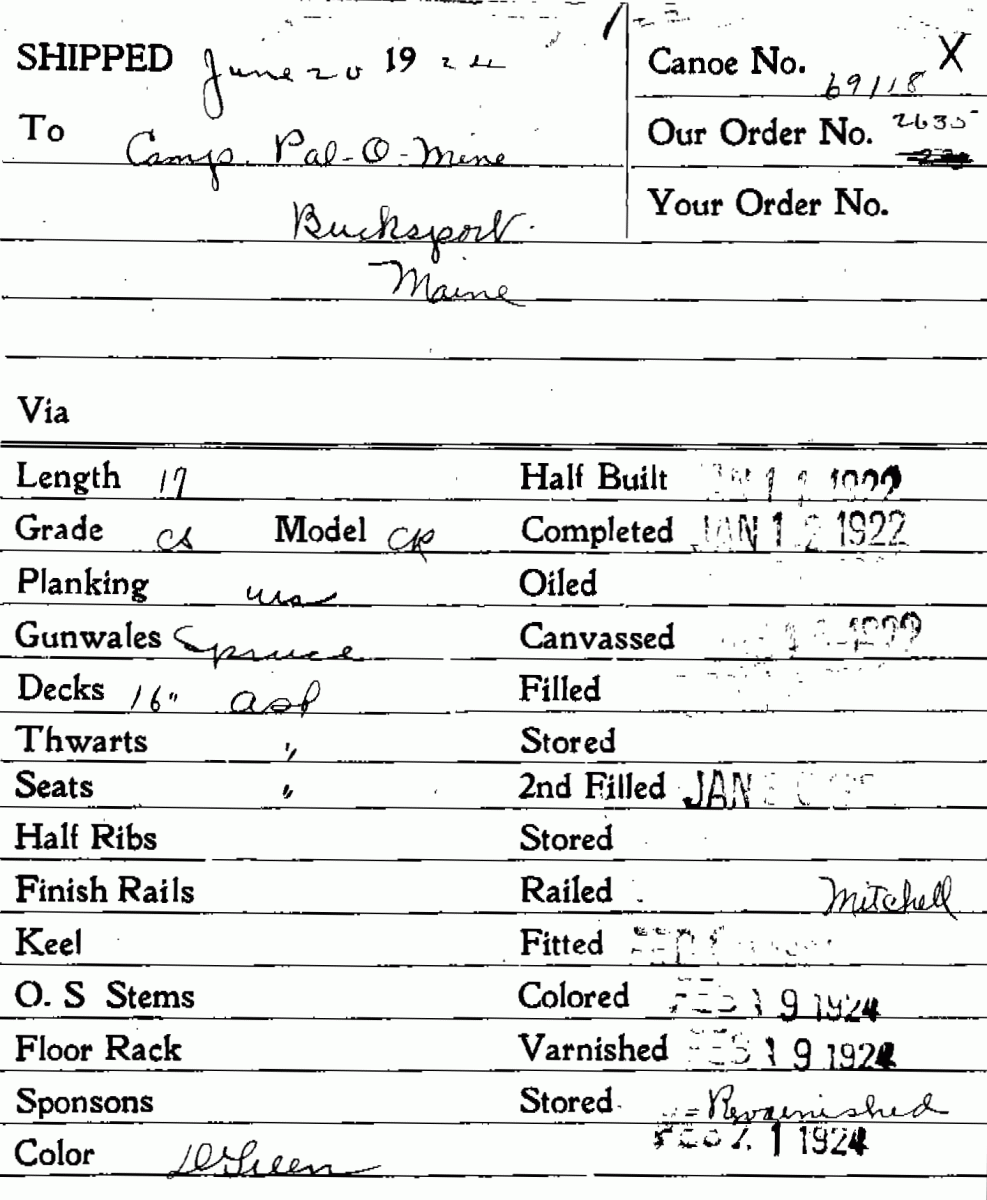 SHIPPED June 20 19 24
Canoe No. 69118 X
To Camp. Pal-O-Mine
Our Order No. 2635
Bucksport.
Your Order No.
Maine
Via
Length 17 Half Built 1 1
Grade CS Model CK Completed JAN 12 1922
Planking Oiled
Gunwales Spruce Canvassed
Decks 16" ash Filled
Thwarts " Stored
Seats " 2nd Filled JAN
Half Ribs Stored
Finish Rails Railed Mitchell
Keel Fitted
O. S Stems Colored FEB 19 1924
Floor Rack Varnished FEB 19 1924
Sponsons Stored Revarnished
Color D Green FEB 21 1924